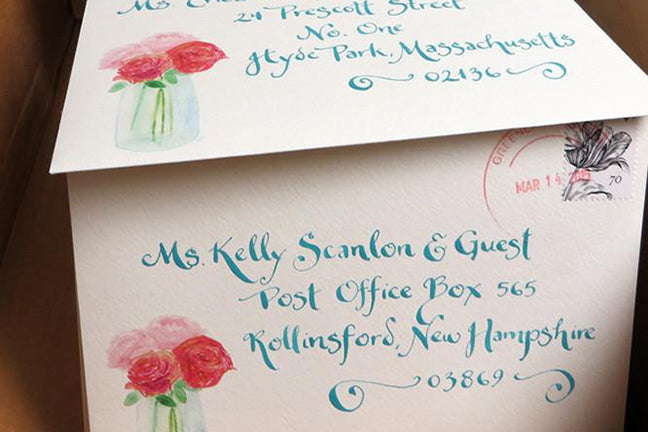 Ms.
24 Prescott Street
No. One
Hyde Park, Massachusetts
02136
MAR 14
70
Ms. Kelly Scanlon & Guest
Post Office Box 565
Rollinsford, New Hampshire
03869